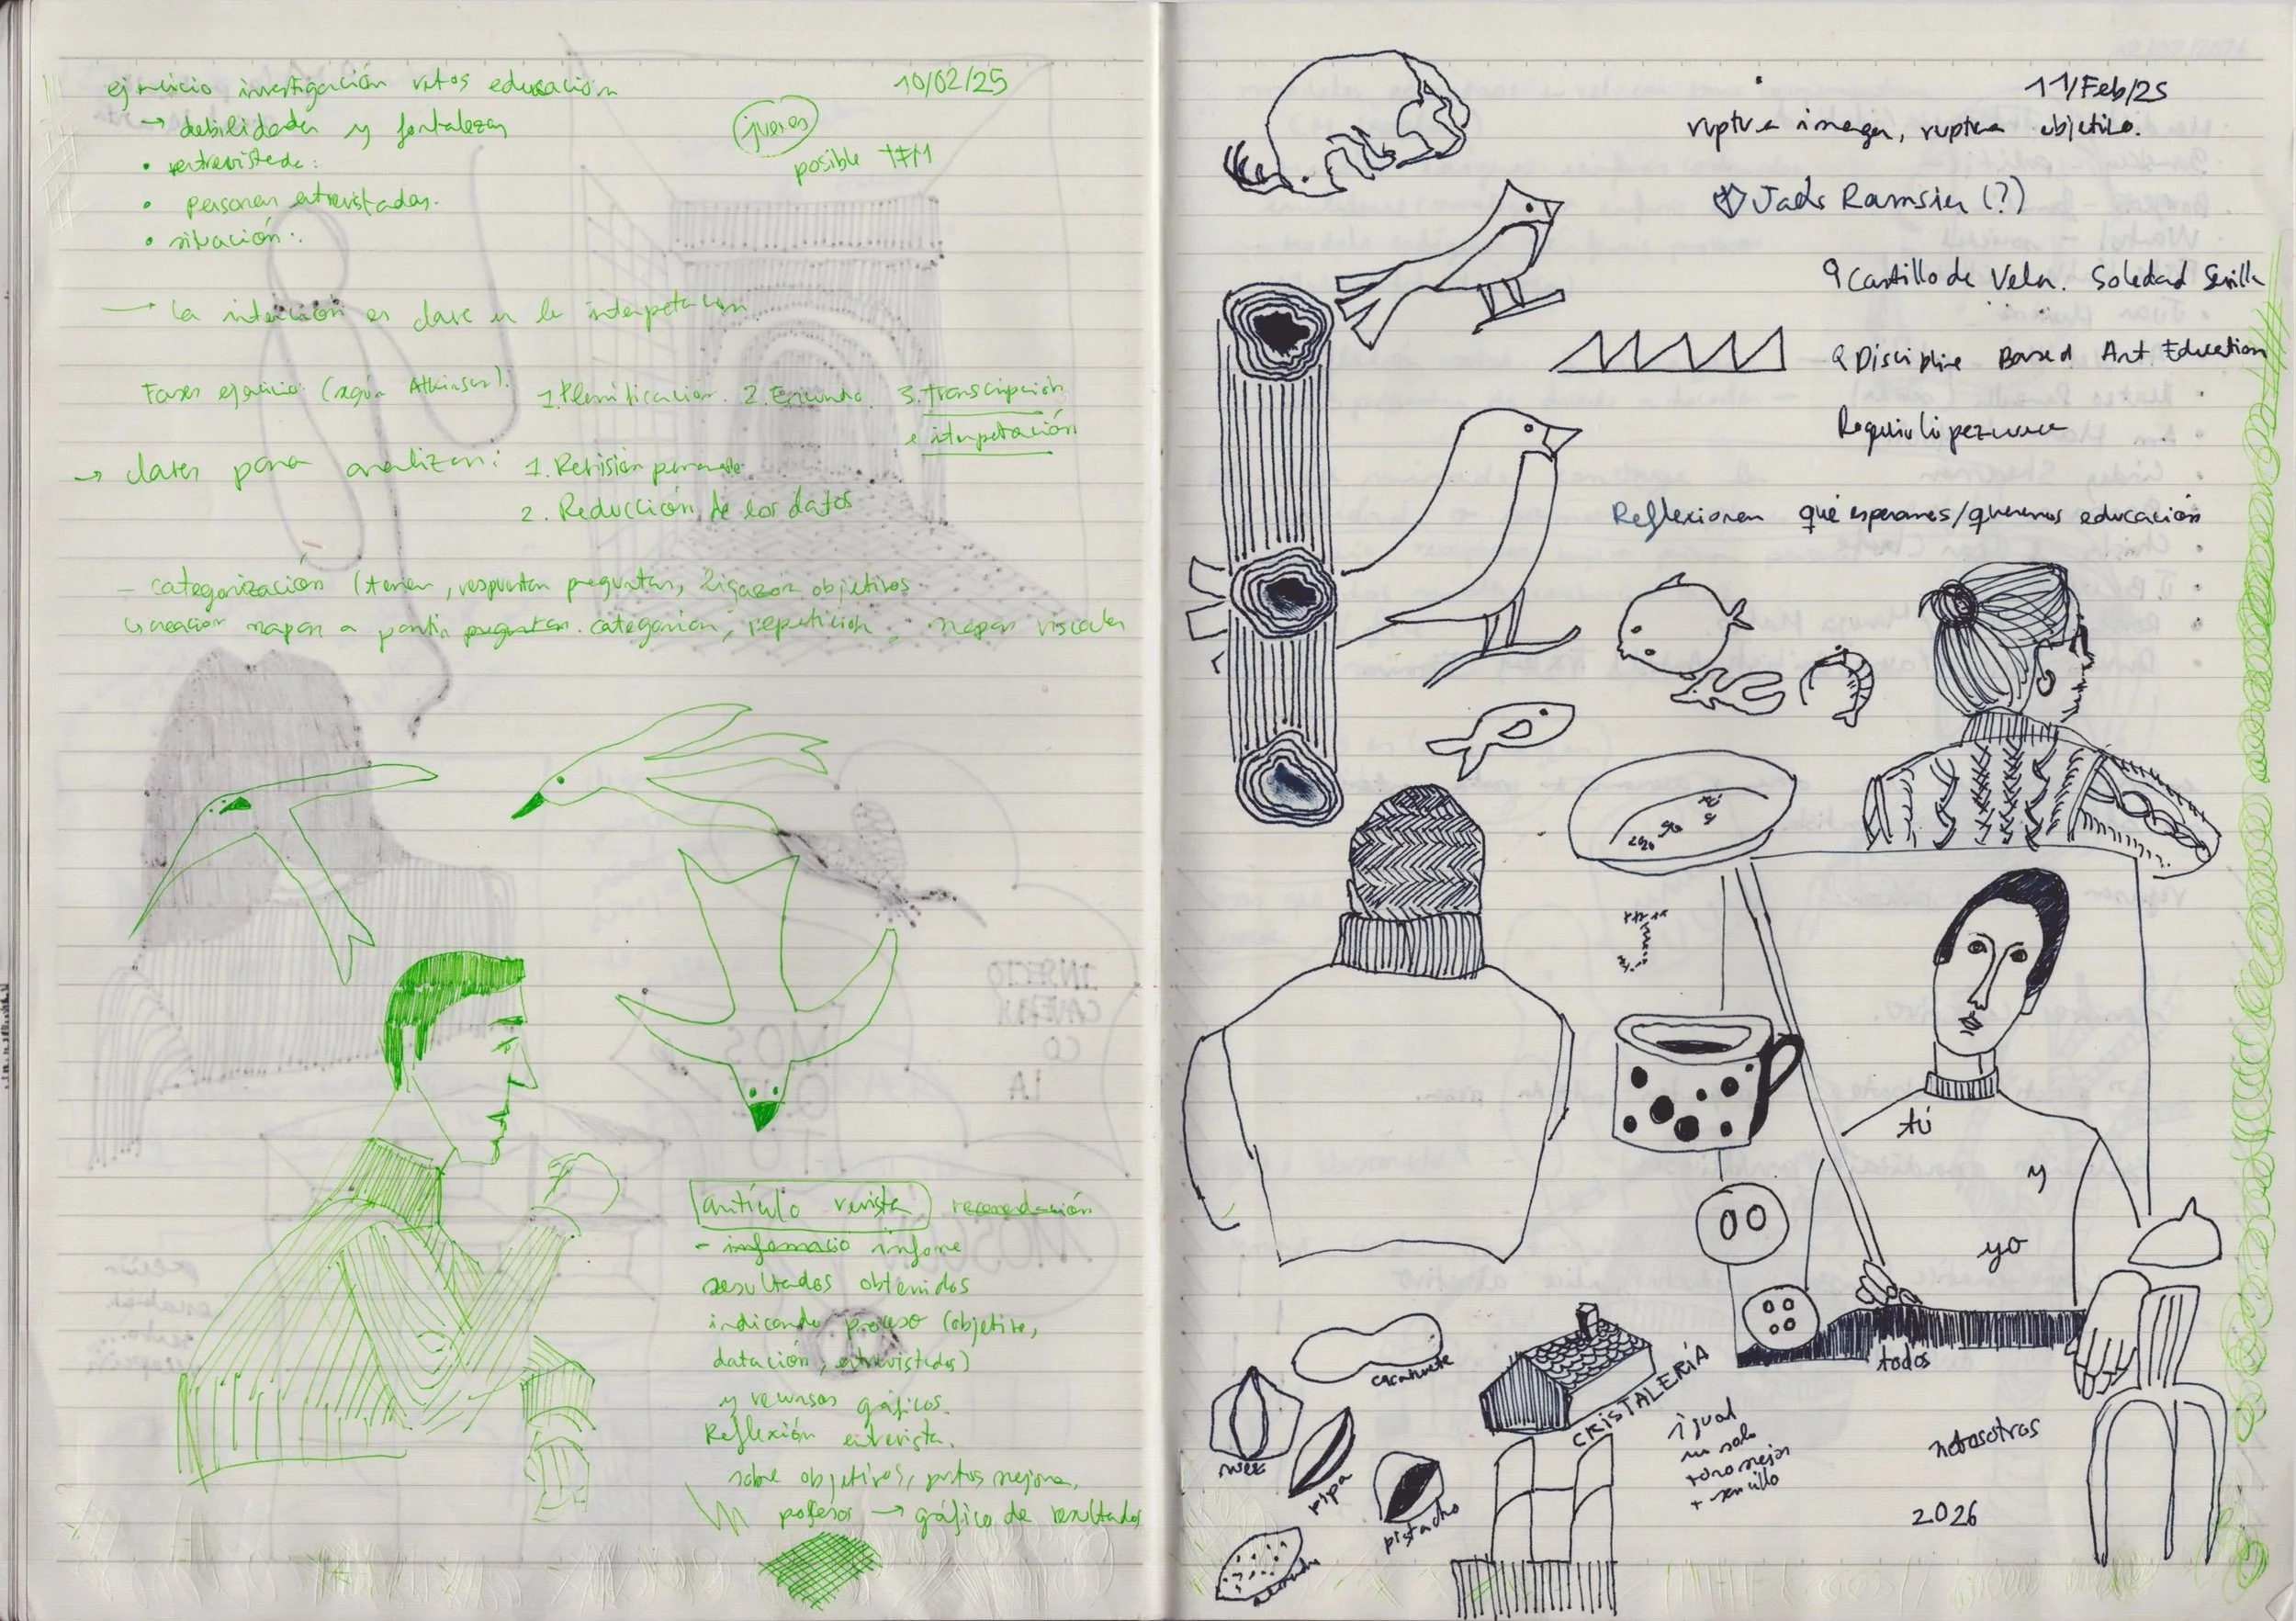 ejercicio investigación retos educación
10/02/25
→ debilidades y fortalezas
jueves
posible TFM
• entrevistador:
• personas entrevistadas.
• situación:
→ la intención es clave en la interpretación
Fases ejercicio (según Atkinson). 1. Planificación. 2. Encuentro. 3. Transcripción
e interpretación
→ claves para analizar: 1. Revisión permanente
2. Reducción de los datos
- categorización (temas, respuestas preguntas, ligazon objetivos
↳ creación mapas a partir preguntas. categorías, repetición, mapas visuales
artículo revista recomendación
- informacio informe
resultados obtenidos
indicando proceso (objetivo,
datación, entrevistados)
y recursos gráficos.
Reflexión entrevista.
sobre objetivos, puntos mejora,
profesor → gráfico de resultados
11/Feb/25
ruptura imagen, ruptura objetivo.
Ramsier (?)
Castillo de Velez. Soledad Sevilla
Discipline Based Art Education
Reflexionar qué esperamos/queremos educación
J
tú
y
yo
todos
cacahuete
nuez
pipa
pistacho
almendra
CRISTALERÍA
igual
un solo
tono mejor
+ sencillo
notosotros
2026